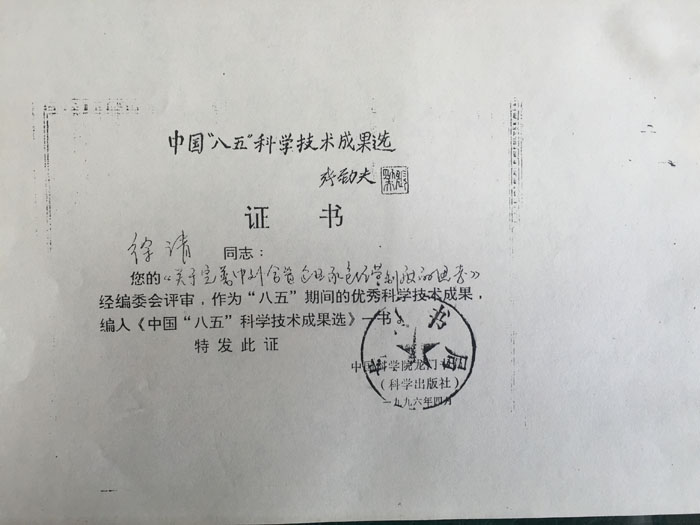 中国“八五”科学技术成果选
证 书
徐清 同志：
您的《关于完善中外合资企业承包经营制度的思考》
经编委会评审，作为“八五”期间的优秀科学技术成果，
编入《中国“八五”科学技术成果选》一书。
特发此证
中国科学院龙门
（科学出版社）
一九九六年四月